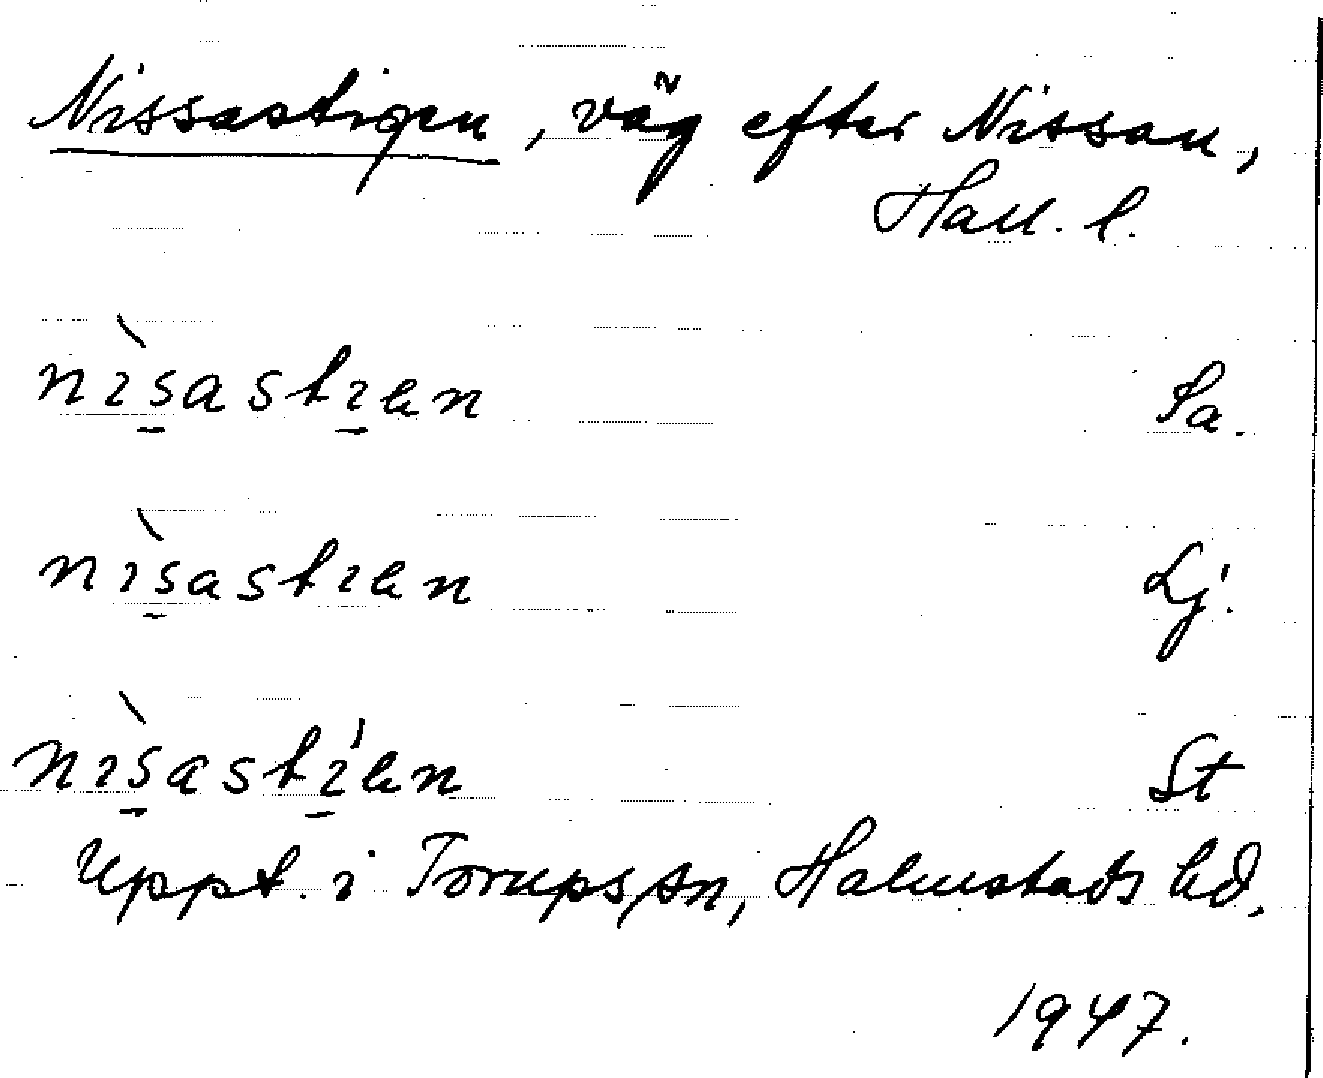 Nissastigen, väg efter Nissan,
Hall. l.
nìs̱astı̱en Sa.
nìs̱astıen Lj.
nìs̱astı̱́en St
Uppt. i Torups sn, Halmstads hd.
1947.